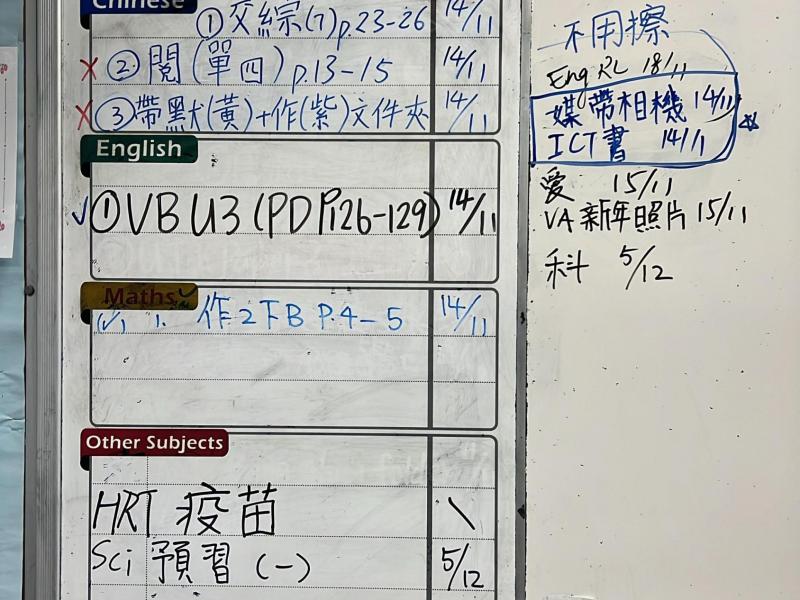 Chinese
① 交綜(7) p.23-26 14/11
✗ ② 閱(單四) p.13-15 14/11
✗ ③ 帶默(黃)+作(紫)文件夾 14/11
English
✓ ① VB U3 (PD P.126-129) 14/11
Maths ✓
1. 作2下B P.4-5 14/11
Other Subjects
HRT 疫苗 \
Sci 預習 (一) 5/12
不用擦
Eng RL 18/11
媒 帶相機 14/11
ICT書 14/11
愛 15/11
VA 新年照片 15/11
科 5/12